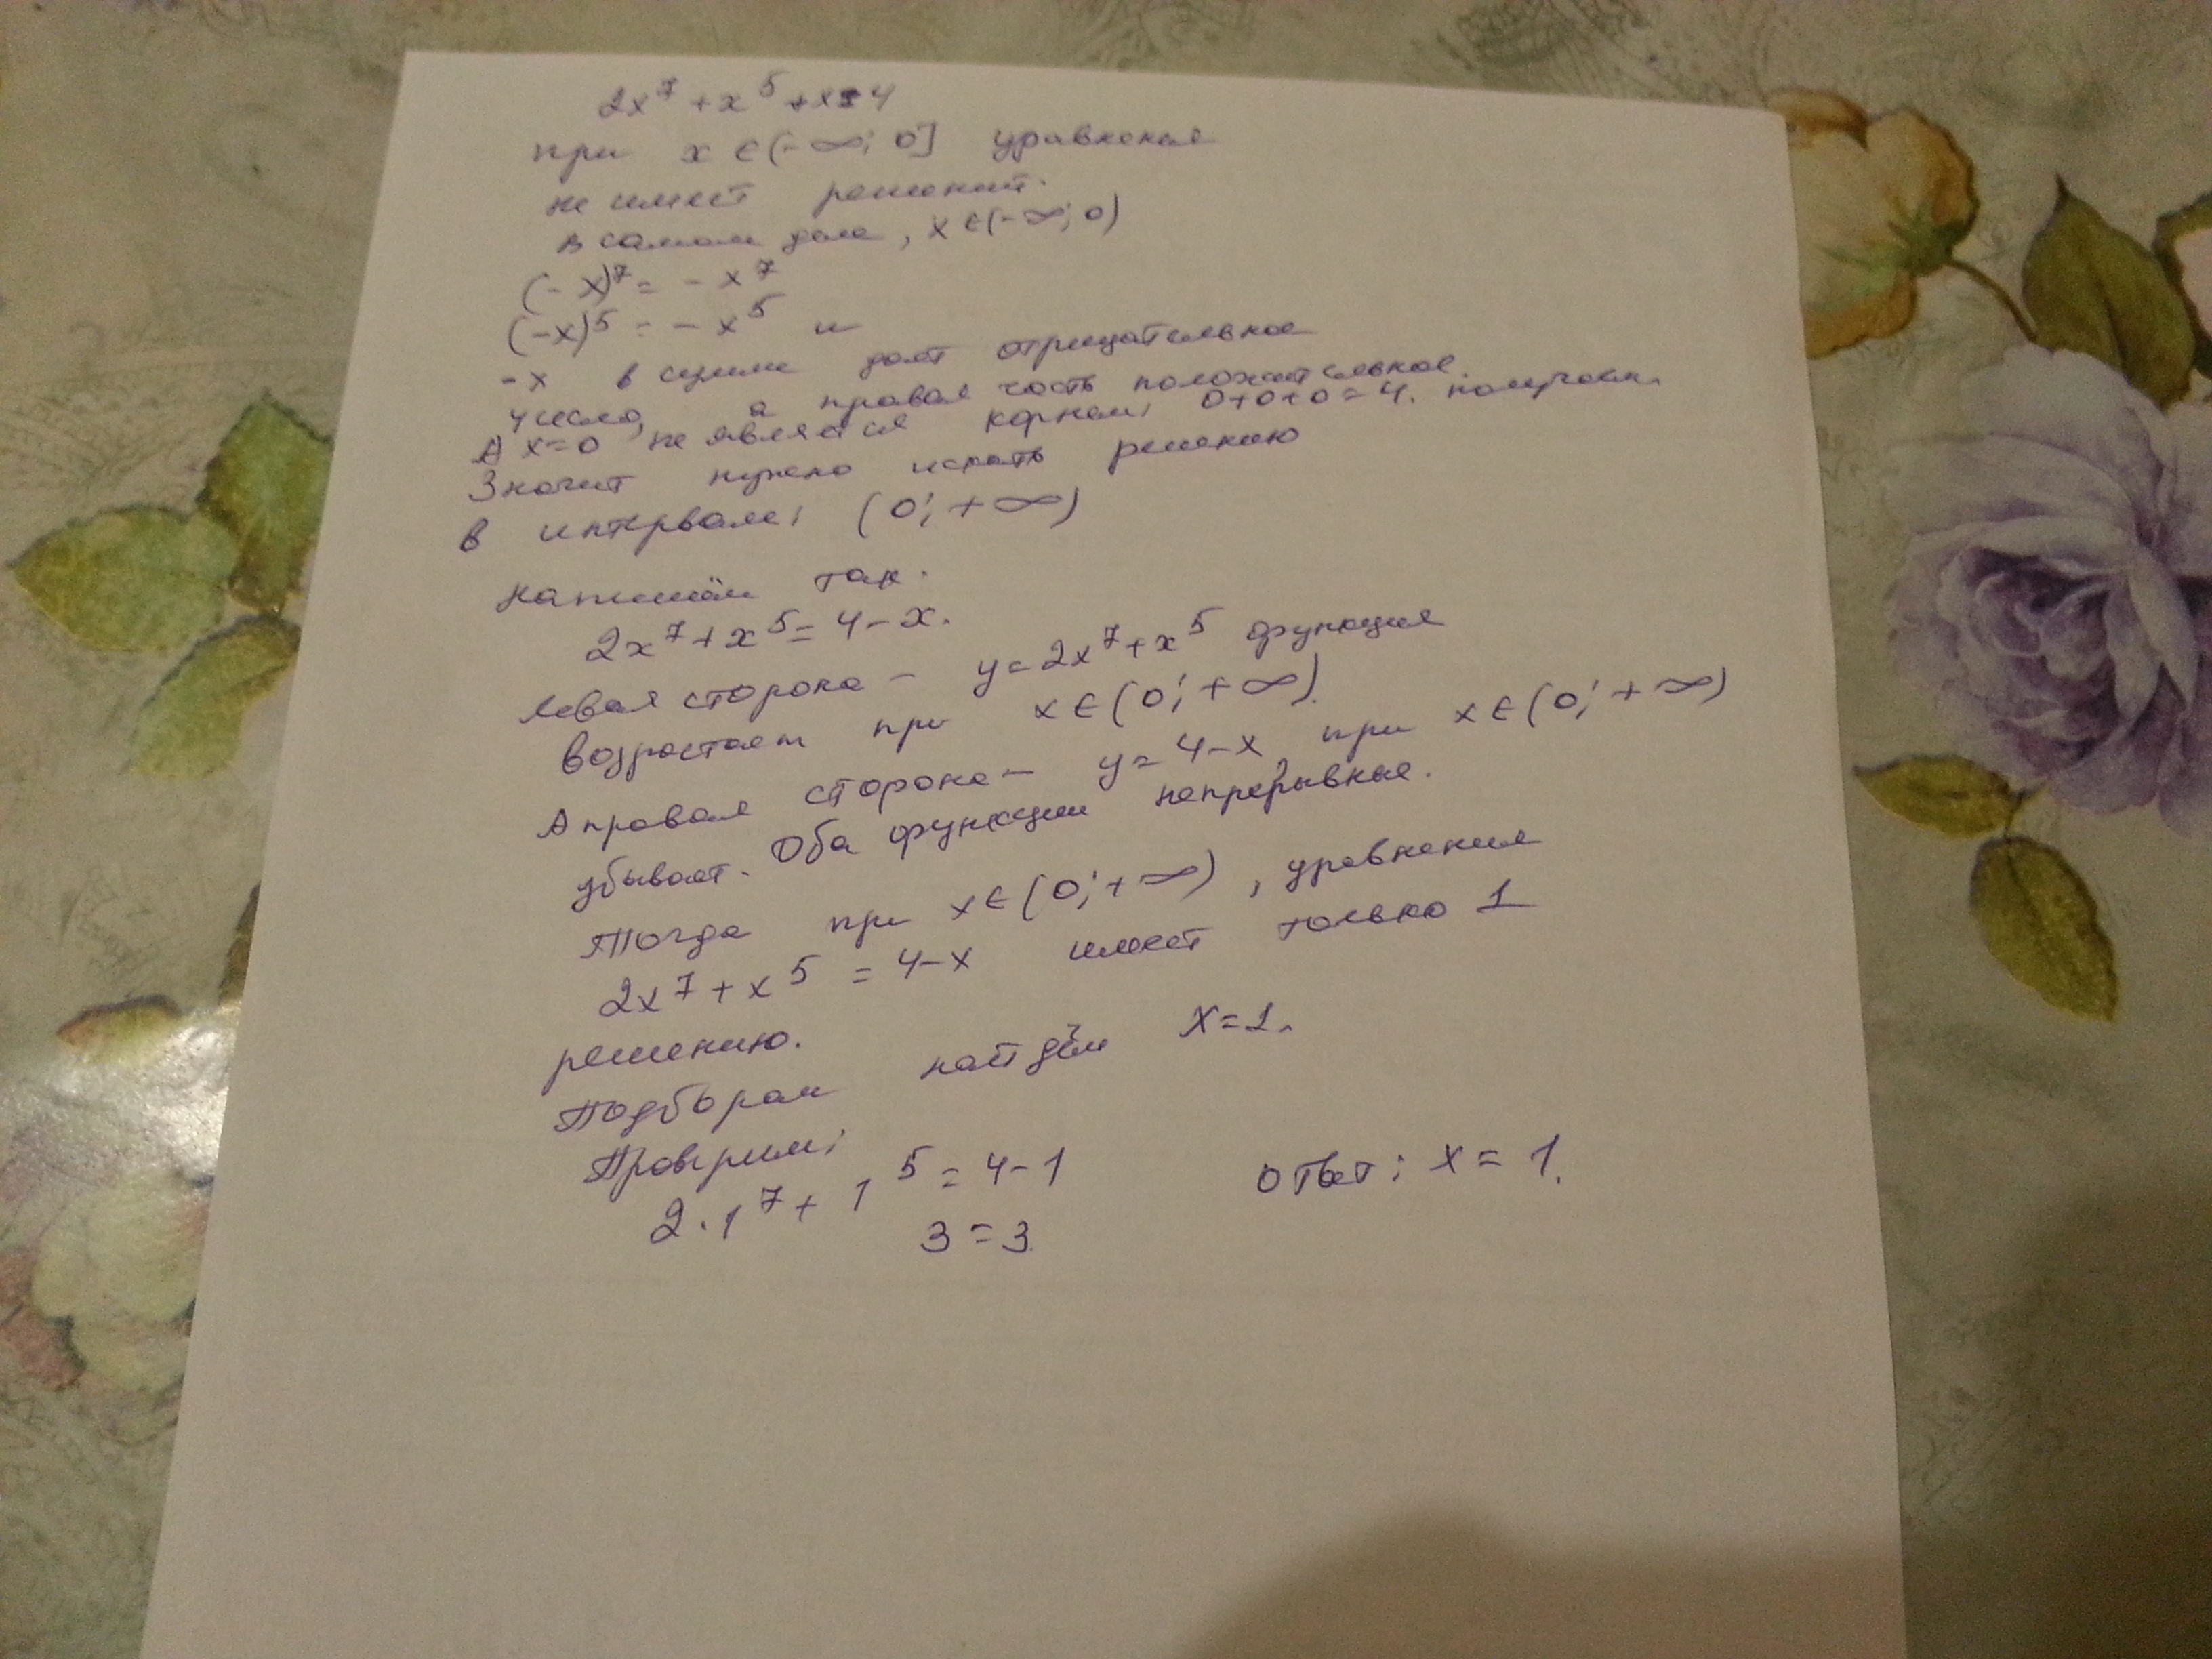 2x⁷ + x⁵ + x = 4
при x ∈ (-∞; 0] уравнения
не имеет решений.
в самом деле, x ∈ (-∞; 0)
(-x)⁷ = -x⁷
(-x)⁵ = -x⁵ и
-x в сумме дает отрицательное
число, а правая часть положительное.
А x=0 не является корнем; 0+0+0=4. получаем.
Значит нужно искать решению
в интервале; (0; +∞)
Напишем так.
2x⁷ + x⁵ = 4 - x.
Левая сторона - y = 2x⁷ + x⁵ функция
возрастает при x ∈ (0; +∞).
А правая сторона - y = 4 - x при x ∈ (0; +∞)
убывает. Оба функции непрерывные.
Тогда при x ∈ (0; +∞), уравнения
2x⁷ + x⁵ = 4 - x имеет только 1
решению.
Подборам найдём x = 1.
Проверим;
2·1⁷ + 1⁵ = 4 - 1
3 = 3.
Ответ; x = 1.